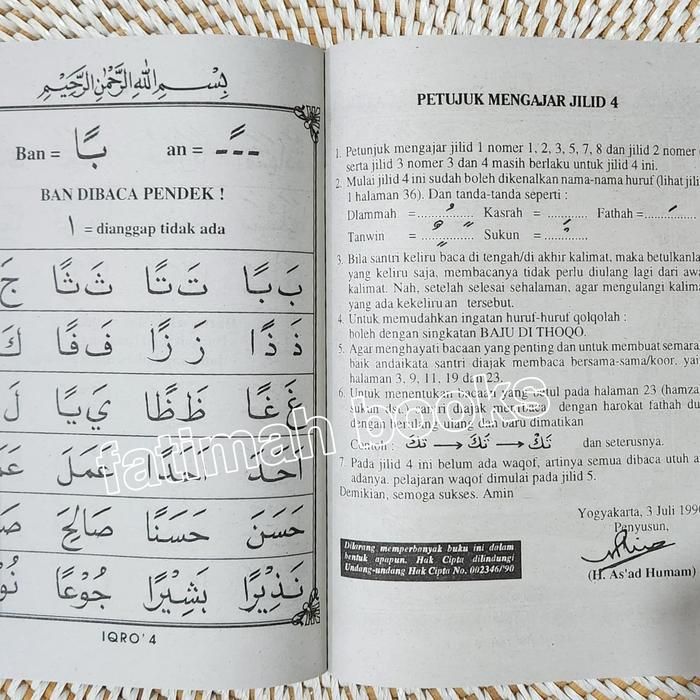 بِسْمِ اللهِ الرَّحْمٰنِ الرَّحِيْمِ
Ban = بًا an = ـًـ
BAN DIBACA PENDEK !
١ = dianggap tidak ada
بَ بًا تَ تًا ثَ ثًا جَ
ذَ ذًا زَ زًا فَ فًا كَ
غَ غًا ظَ ظًا يَ يًا لَ
أَحَدَ أَحَدًا عَمَلَ
حَسَنَ حَسَنًا صَالِحَ
نَذِيْرًا بَشِيْرًا جُوْعًا
IQRO' 4
PETUJUK MENGAJAR JILID 4
1. Petunjuk mengajar jilid 1 nomer 1, 2, 3, 5, 7, 8 dan jilid 2 nomer
serta jilid 3 nomer 3 dan 4 masih berlaku untuk jilid 4 ini.
2. Mulai jilid 4 ini sudah boleh dikenalkan nama-nama huruf (lihat
1 halaman 36). Dan tanda-tanda seperti :
Dlammah =.............. Kasrah =............. Fathah =.............
Tanwin =.............. Sukun =.............
3. Bila santri keliru baca di tengah/di akhir kalimat, maka
yang keliru saja, membacanya tidak perlu diulang lagi dari
kalimat. Nah, setelah selesai sehalaman, agar mengulangi
yang ada kekeliruan tersebut.
4. Untuk memudahkan ingatan huruf-huruf qolqolah :
boleh dengan singkatan BAJU DI THOQO.
5. Agar menghayati bacaan yang penting dan untuk membuat
baik andaikata santri diajak membaca bersama-sama/koor,
halaman 3, 9, 11, 19 dan 23.
6. Untuk menentukan bacaan yang betul pada halaman 23
sukun dst) santri diajak membaca dengan harokat fathah
dengan berulang-ulang dan baru dimatikan
Contoh : تَكَ → تَكَ → تَكْ dan seterusnya.
7. Pada jilid 4 ini belum ada waqof, artinya semua dibaca utuh
adanya. pelajaran waqof dimulai pada jilid 5.
Demikian, semoga sukses. Amin
Yogyakarta, 3 Juli
Penyusun,
(H. As'ad Humam)
Dilarang memperbanyak buku ini dalam
bentuk apapun. Hak Cipta dilindungi
Undang-undang Hak Cipta No. 002346/'90
fatimah books